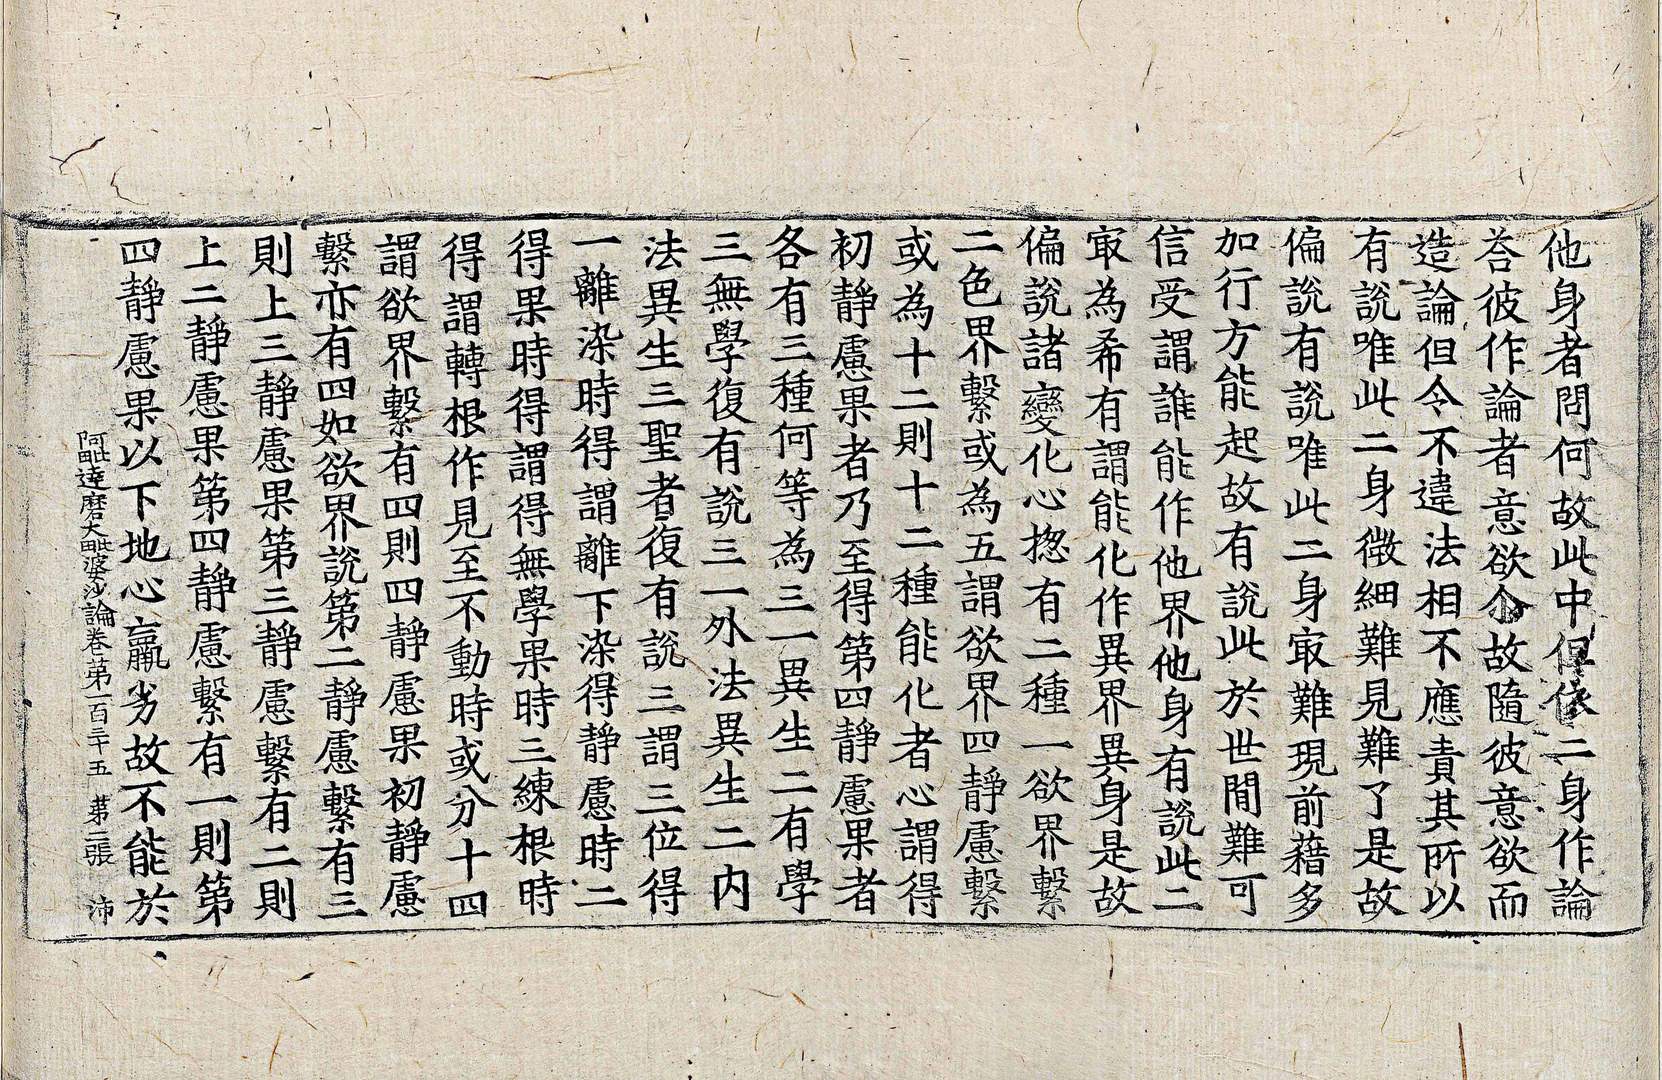 他身者問何故此中但依二身作論
荅彼作論者意欲尒故隨彼意欲而
造論但令不違法相不應責其所以
有說唯此二身微細難見難了是故
偏說有說唯此二身㝡難現前藉多
加行方能起故有說此於世間難可
信受謂誰能作他界他身有說此二
㝡為希有謂能化作異界異身是故
偏說諸變化心揔有二種一欲界繫
二色界繫或為五謂欲界四靜慮繫
或為十二則十二種能化者心謂得
初靜慮果者乃至得第四靜慮果者
各有三種何等為三一異生二有學
三無學復有說三一外法異生二內
法異生三聖者復有說三謂三位得
一離染時得謂離下染得靜慮時二
得果時得謂得無學果時三練根時
得謂轉根作見至不動時或分十四
謂欲界繫有四則四靜慮果初靜慮
繫亦有四如欲界說第二靜慮繫有三
則上三靜慮果第三靜慮繫有二則
上二靜慮果第四靜慮繫有一則第
四靜慮果以下地心羸劣故不能於
阿毗達磨大毗婆沙論卷第一百三十五 第二張 沛